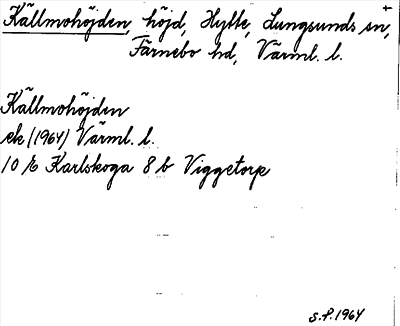 Källmohöjden, höjd, Hytte, Lungsunds sn,
Färnebo hd, Värml. l.
Källmohöjden
ek (1964) Värml. l.
10 E Karlskoga 8 b Viggetorp
S.P. 1964